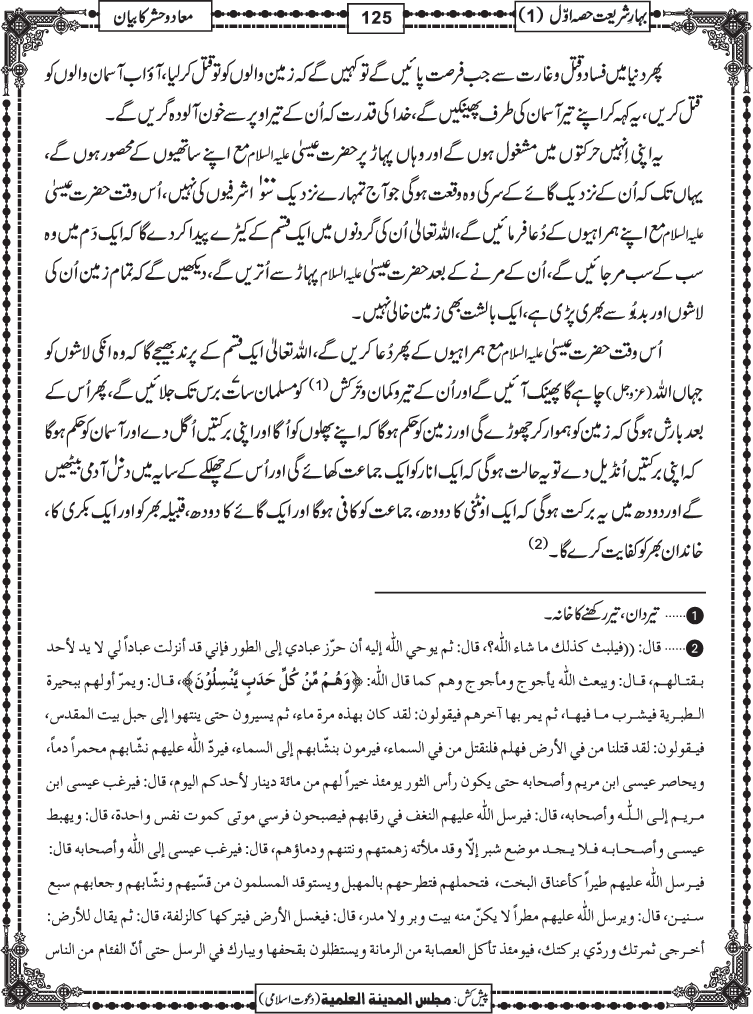 بہارِشریعت حصہ اوّل (1)
125
معاد و حشر کا بیان
پھر دنیا میں فساد و قتل و غارت سے جب فرصت پائیں گے تو کہیں گے کہ زمین والوں کو تو قتل کرلیا، آؤ اب آسمان والوں کو
قتل کریں، یہ کہہ کر اپنے تیر آسمان کی طرف پھینکیں گے، خدا کی قدرت کہ اُن کے تیر اوپر سے خون آلودہ گریں گے۔
یہ اپنی اِنہیں حرکتوں میں مشغول ہوں گے اور وہاں پہاڑ پر حضرت عیسیٰ علیہ السلام مع اپنے ساتھیوں کے محصور ہوں گے،
یہاں تک کہ اُن کے نزدیک گائے کے سر کی وہ وقعت ہوگی جو آج تمہارے نزدیک سَو۱۰۰ اشرفیوں کی نہیں، اُس وقت حضرت عیسیٰ
علیہ السلام مع اپنے ہمراہیوں کے دُعا فرمائیں گے، اللہ تعالیٰ اُن کی گردنوں میں ایک قسم کے کیڑے پیدا کر دے گا کہ ایک دَم میں وہ
سب کے سب مر جائیں گے، اُن کے مرنے کے بعد حضرت عیسیٰ علیہ السلام پہاڑ سے اُتریں گے، دیکھیں گے کہ تمام زمین اُن کی
لاشوں اور بدبُو سے بھری پڑی ہے، ایک بالشت بھی زمین خالی نہیں۔
اُس وقت حضرت عیسیٰ علیہ السلام مع ہمراہیوں کے پھر دُعا کریں گے، اللہ تعالیٰ ایک قسم کے پرند بھیجے گا کہ وہ انکی لاشوں کو
جہاں اللہ (عزوجل) چاہے گا پھینک آئیں گے اور اُن کے تیر و کمان و تَرکش (1) کو مسلمان سات۷ برس تک جلائیں گے، پھر اُس کے
بعد بارش ہوگی کہ زمین کو ہموار کر چھوڑے گی اور زمین کو حکم ہوگا کہ اپنے پھلوں کو اُگا اور اپنی برکتیں اُگل دے اور آسمان کو حکم ہوگا
کہ اپنی برکتیں اُنڈیل دے تو یہ حالت ہوگی کہ ایک انار کو ایک جماعت کھائے گی اور اُس کے چھلکے کے سایہ میں دس۱۰ آدمی بیٹھیں
گے اور دودھ میں یہ برکت ہوگی کہ ایک اونٹنی کا دودھ، جماعت کو کافی ہوگا اور ایک گائے کا دودھ، قبیلہ بھر کو اور ایک بکری کا،
خاندان بھر کو کفایت کرے گا۔ (2)
1 ...... تیردان، تیر رکھنے کا خانہ۔
2 ...... قال: ((فيلبث كذلك ما شاء الله؟، قال: ثم يوحي الله إليه أن حرّز عبادي إلى الطور فإني قد أنزلت عباداً لي لا يد لأحد
بقتالهم، قال: ويبعث الله يأجوج ومأجوج وهم كما قال الله: ﴿وَهُمْ مِّنْ كُلِّ حَدَبٍ يَّنْسِلُوْنَ﴾، قال: ويمرّ أولهم ببحيرة
الطبرية فيشرب ما فيها، ثم يمر بها آخرهم فيقولون: لقد كان بهذه مرة ماء، ثم يسيرون حتى ينتهوا إلى جبل بيت المقدس،
فيقولون: لقد قتلنا من في الأرض فهلم فلنقتل من في السماء، فيرمون بنشّابهم إلى السماء، فيردّ الله عليهم نشّابهم محمراً دماً،
ويحاصر عيسى ابن مريم وأصحابه حتى يكون رأس الثور يومئذ خيراً لهم من مائة دينار لأحدكم اليوم، قال: فيرغب عيسى ابن
مريم إلى الله وأصحابه، قال: فيرسل الله عليهم النغف في رقابهم فيصبحون فرسي موتى كموت نفس واحدة، قال: ويهبط
عيسى وأصحابه فلا يجد موضع شبر إلّا وقد ملأته زهمتهم ونتنهم ودماؤهم، قال: فيرغب عيسى إلى الله وأصحابه قال:
فيرسل الله عليهم طيراً كأعناق البخت، فتحملهم فتطرحهم بالمهبل ويستوقد المسلمون من قسّيهم ونشّابهم وجعابهم سبع
سنين، قال: ويرسل الله عليهم مطراً لا يكنّ منه بيت وبر ولا مدر، قال: فيغسل الأرض فيتركها كالزلفة، قال: ثم يقال للأرض:
أخرجي ثمرتك وردّي بركتك، فيومئذ تأكل العصابة من الرمانة ويستظلون بقحفها ويبارك في الرسل حتى أنّ الفئام من الناس
پیش کش: مجلس المدینة العلمیة (دعوت اسلامی)